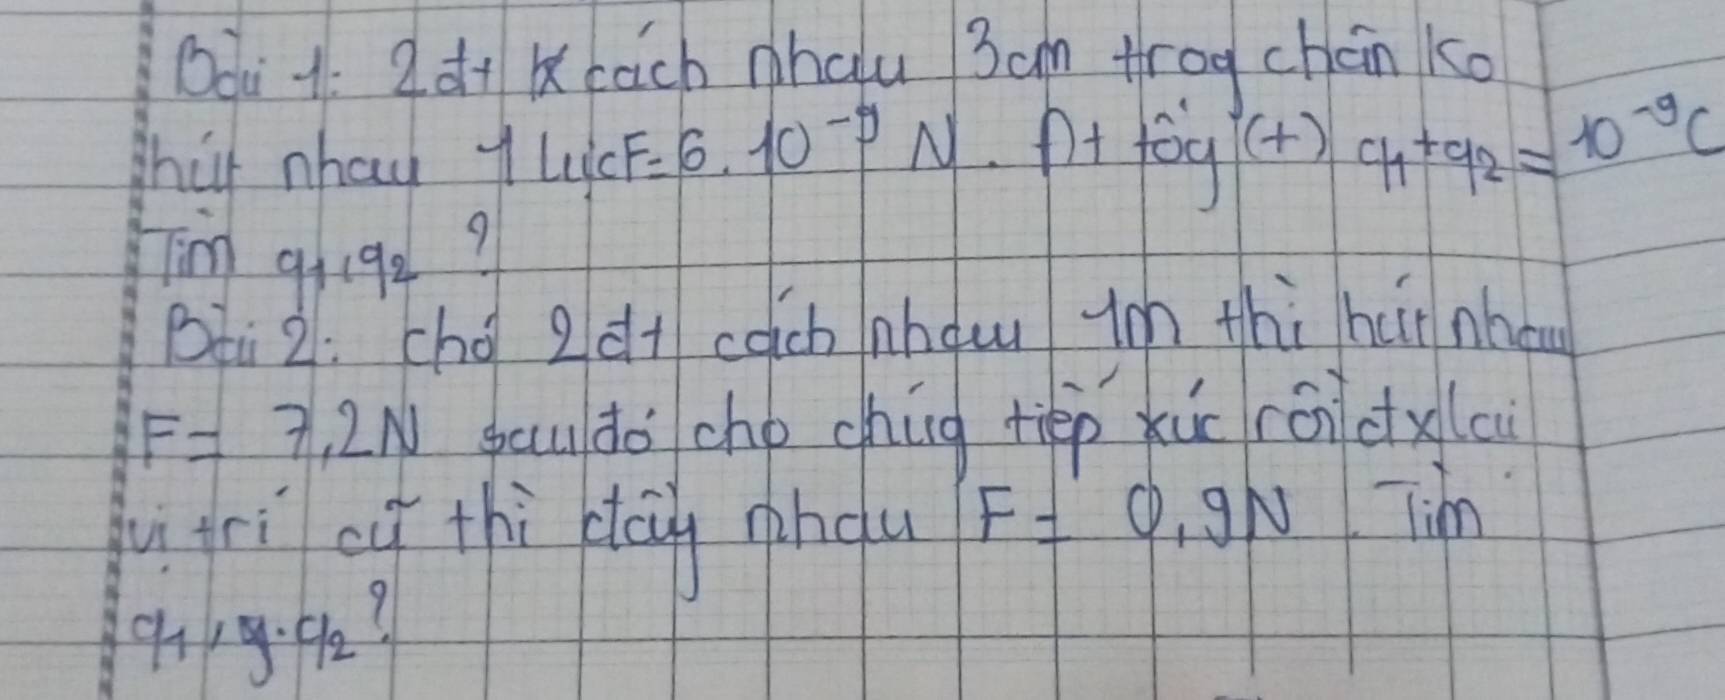 Bài 1: 2 đt cách nhau 3cm trog chân ko
hút nhau 1 lực F = 6.10⁻⁹ N. Đt tổg (+) q₁+q₂ = 10⁻⁹C
Tìm q₁, q₂ ?
Bài 2: cho 2 đt cách nhau 1m thì hút nhau
F = 7,2N sau đó cho chúg tiếp xúc rồi đx lại
vị trí cũ thì đẩy nhau F = 0,9N. Tìm
q₁, q₂ ?